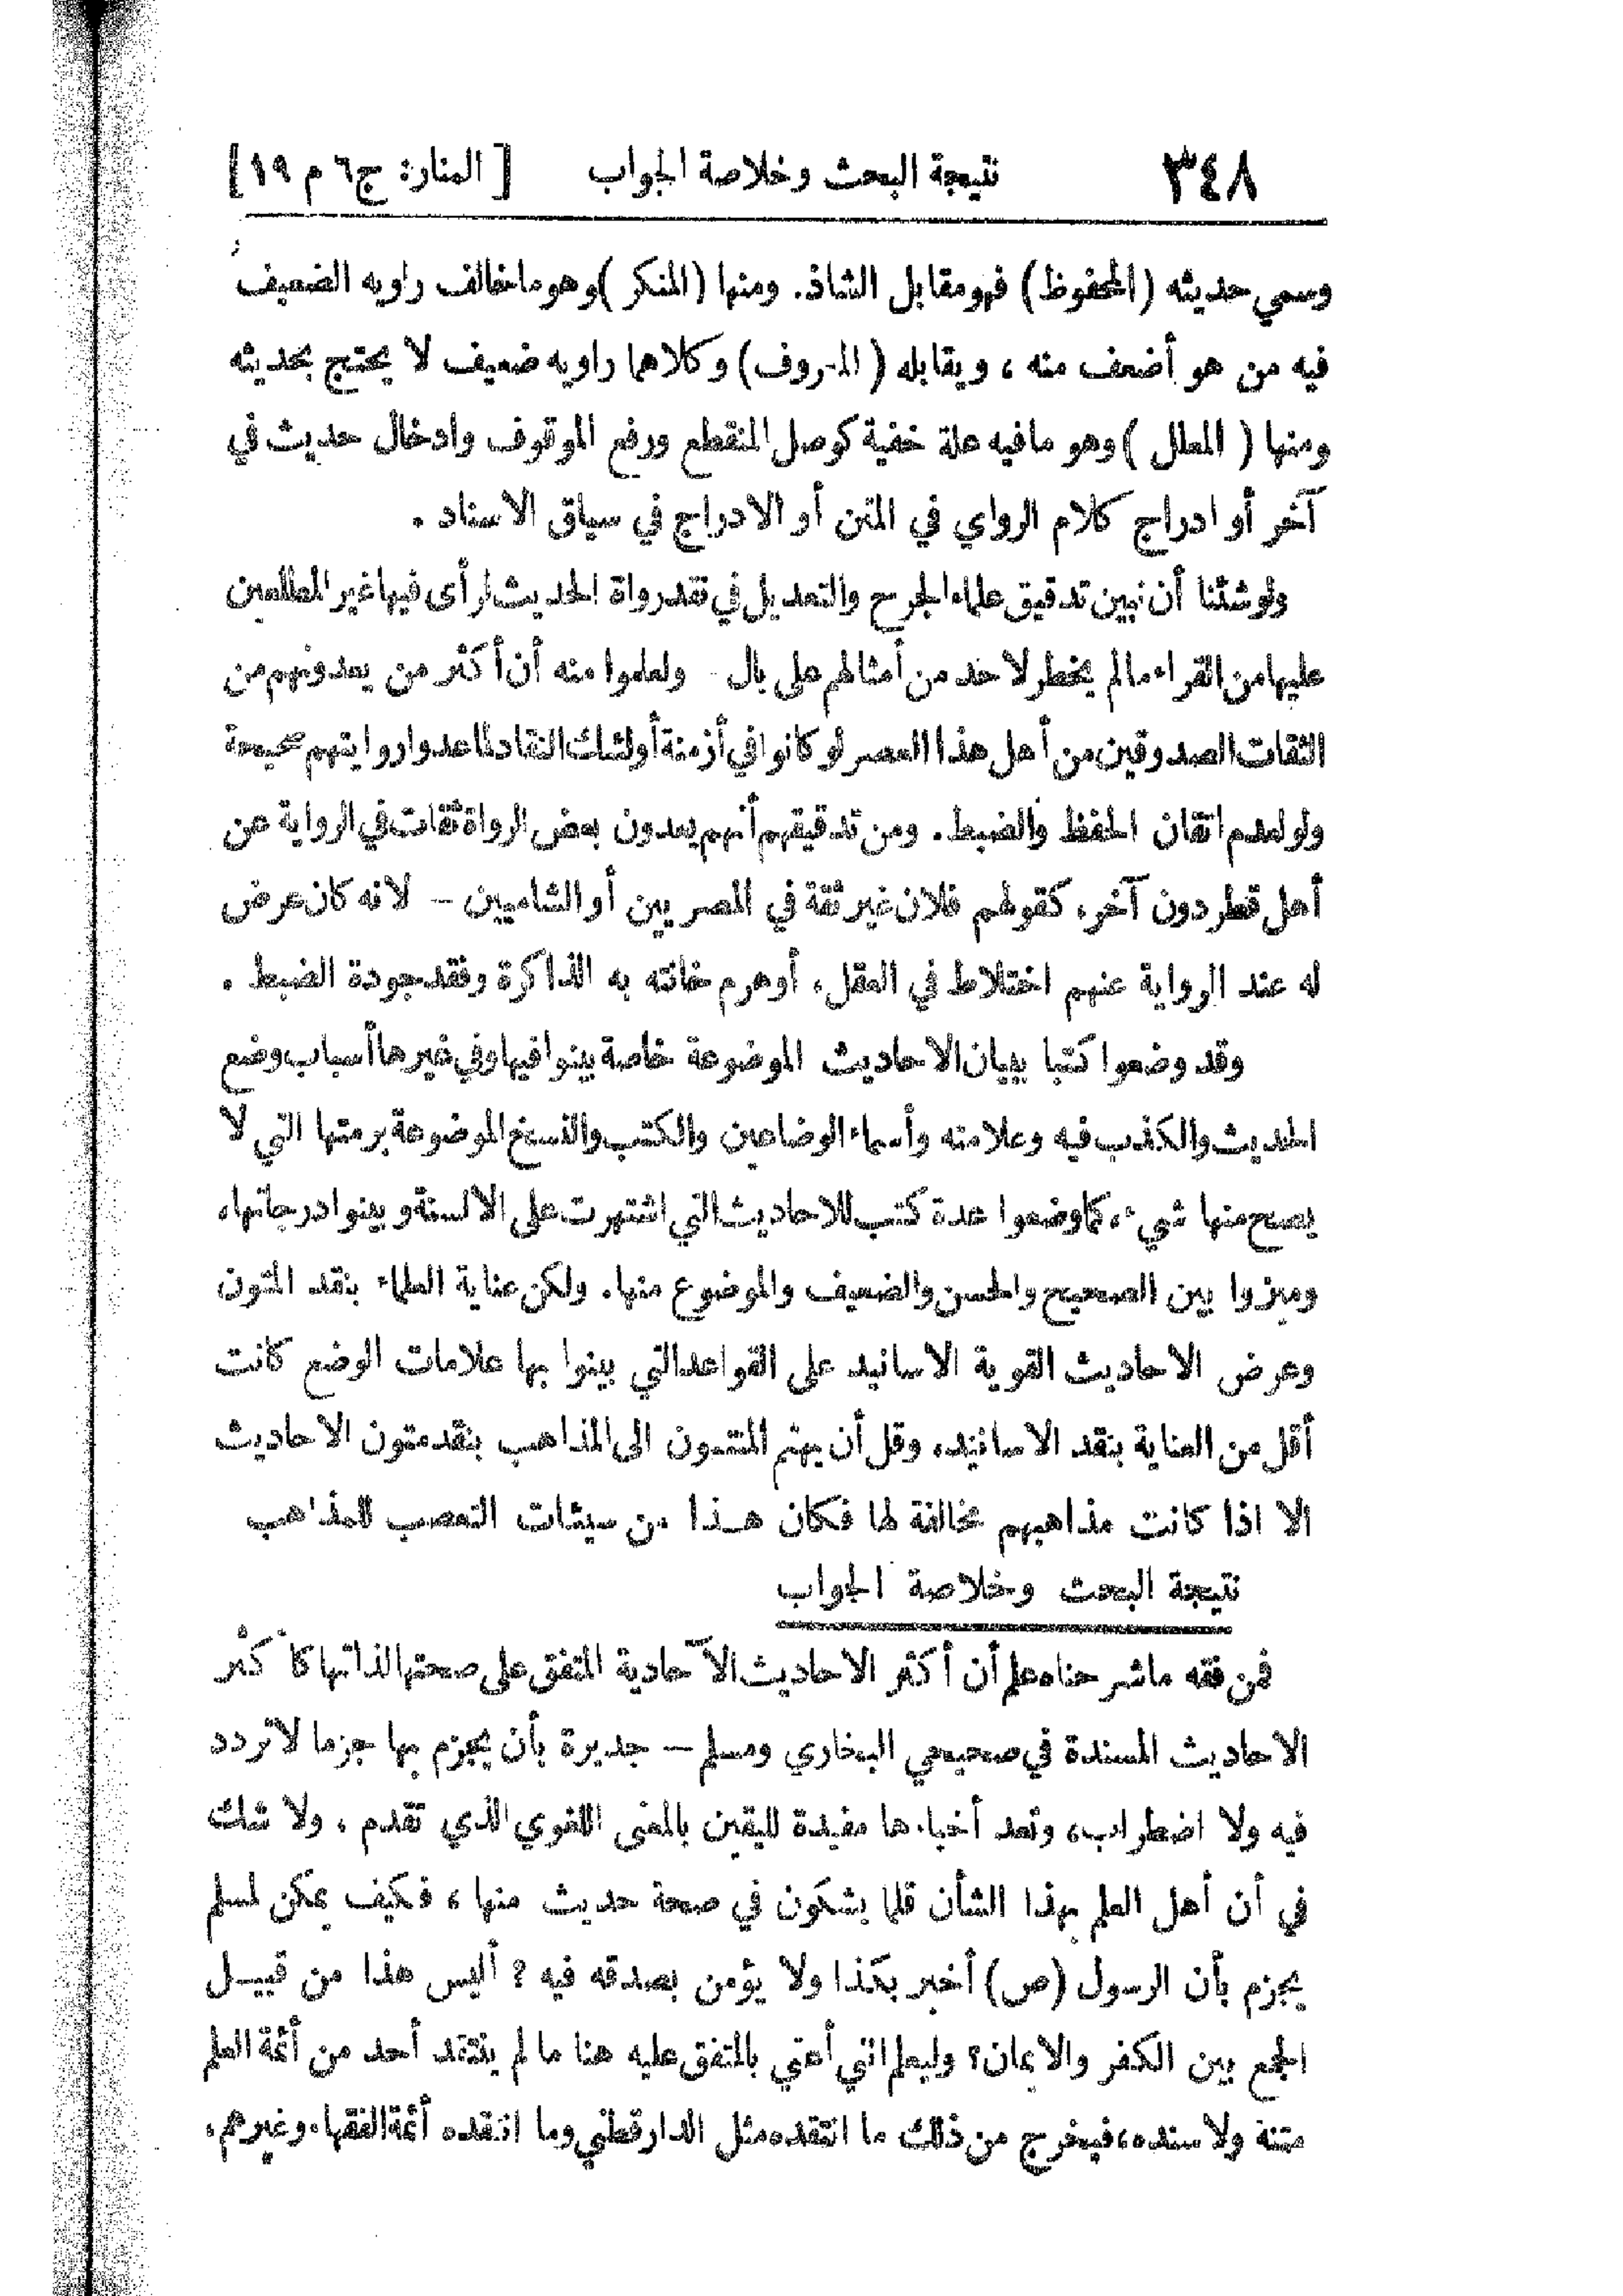 ٣٤٨ نتيجة البحث وخلاصة الجواب [ المنار: ج٦ م ١٩]
وسمي حديثه (المحفوظ) فهو مقابل الشاذ. ومنها (المنكر) وهو ما خالف راويه الضعيف
فيه من هو أضعف منه ، ويقابله ( المـروف) وكلاهما راويه ضعيف لا يحتج بحديثه
ومنها ( المعلل ) وهو ما فيه علة خفية كوصل المنقطع ورفع الموقوف وادخال حديث في
آخر أو ادراج كلام الرواي في المتن أو الادراج في سياق الاسناد .
ولو شئنا أن نبين تدقيق علماء الجرح والتعديل في نقد رواة الحديث لرأى فيها غير المطلعين
عليها من القراء ما لم يخطر لاحد من أمثالهم على بال - ولعلموا منه أن أكثر من يعدونهم من
الثقات الصدوقين من أهل هذا العصر لو كانوا في أزمنة أولئك النقاد لما عدوا روايتهم صحيحة
ولو لعدم اتقان الحفظ والضبط. ومن تدقيقهم أنهم يعدون بعض الرواة ثقات في الرواية عن
أهل قطر دون آخر، كقولهم فلان غير ثقة في المصريين أو الشاميين – لانه كان عرض
له عند الرواية عنهم اختلاط في العقل، أو هرم خانته به الذاكرة وفقد جودة الضبط .
وقد وضعوا كتبا ببيان الاحاديث الموضوعة خاصة بينوا فيها وفي غيرها أسباب وضع
الحديث والكذب فيه وعلامته وأسماء الوضاعين والكتب والنسخ الموضوعة برمتها التي لا
يصح منها شيء، كما وضعوا عدة كتب للاحاديث التي اشتهرت على الالسنة وبينوا درجاتها،
وميزوا بين الصحيح والحسن والضعيف والموضوع منها. ولكن عناية العلماء بنقد المتون
وعرض الاحاديث القوية الاسانيد على القواعد التي بينوا بها علامات الوضع كانت
أقل من العناية بنقد الاسانيد، وقل أن يهتم المنتمون الى المذاهب بنقد متون الاحاديث
الا اذا كانت مذاهبهم مخالفة لها فكان هـذا من سيئات التعصب للمذاهب
نتيجة البحث وخلاصة الجواب
فمن فقه ما شرحناه علم أن أكثر الاحاديث الآحادية المتفق على صحتها لذاتها كأكثر
الاحاديث المسندة في صحيحي البخاري ومسلم – جديرة بأن يجزم بها جزما لا تردد
فيه ولا اضطراب، وتعد أخبارها مفيدة لليقين بالمعنى اللغوي الذي تقدم ، ولا شك
في أن أهل العلم بهذا الشأن قلما يشكون في صحة حديث منها ، فكيف يمكن لمسلم
يجزم بأن الرسول (ص) أخبر بكذا ولا يؤمن بصدقه فيه ؟ أليس هذا من قبيـل
الجمع بين الكفر والايمان؟ وليعلم انني أعني بالمتفق عليه هنا ما لم ينتقد أحد من أئمة العلم
متنه ولا سنده، فيخرج من ذلك ما انتقده مثل الدارقطني وما انتقده أئمة الفقهاء وغيرهم،